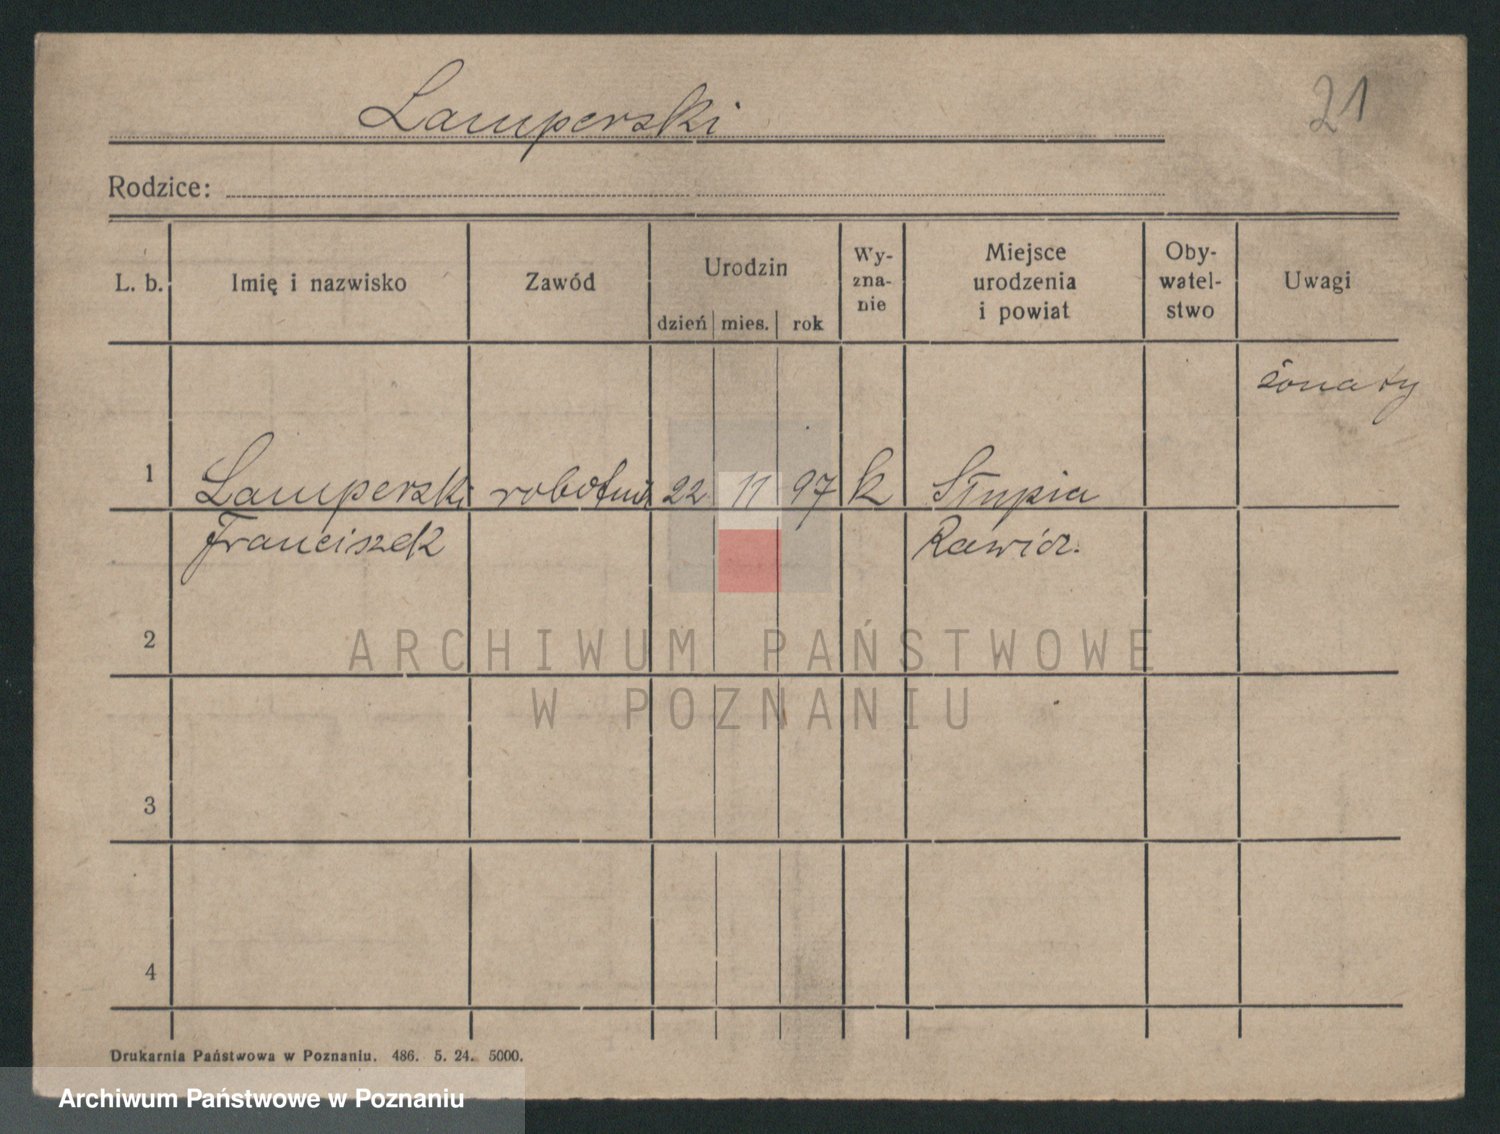 Lamperski
21
Rodzice:
L. b. Imię i nazwisko Zawód Urodzin dzień mies. rok Wy-zna-nie Miejsce urodzenia i powiat Oby-watel-stwo Uwagi
żonaty
1 Lamperski robotnik 22 11 97 k Słupia
Franciszek Rawicz.
2
ARCHIWUM PAŃSTWOWE
W POZNANIU
3
4
Drukarnia Państwowa w Poznaniu. 486. 5. 24. 5000.
Archiwum Państwowe w Poznaniu